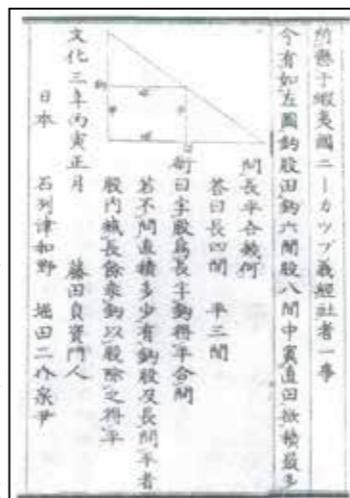 所懸于蝦夷國ニーカップ義經社者一事
今有如左圖鈎股田鈎六間股八間中實直田欲積最多
問長平各幾何
答曰長四間 平三間
術曰半股爲長半鈎得平合問
若不問直積多少有鈎股及長問平者
股内減長餘乘鈎以股除之得平
文化三年丙寅正月 藤田貞資門人
日本 石列津和野 堀田二